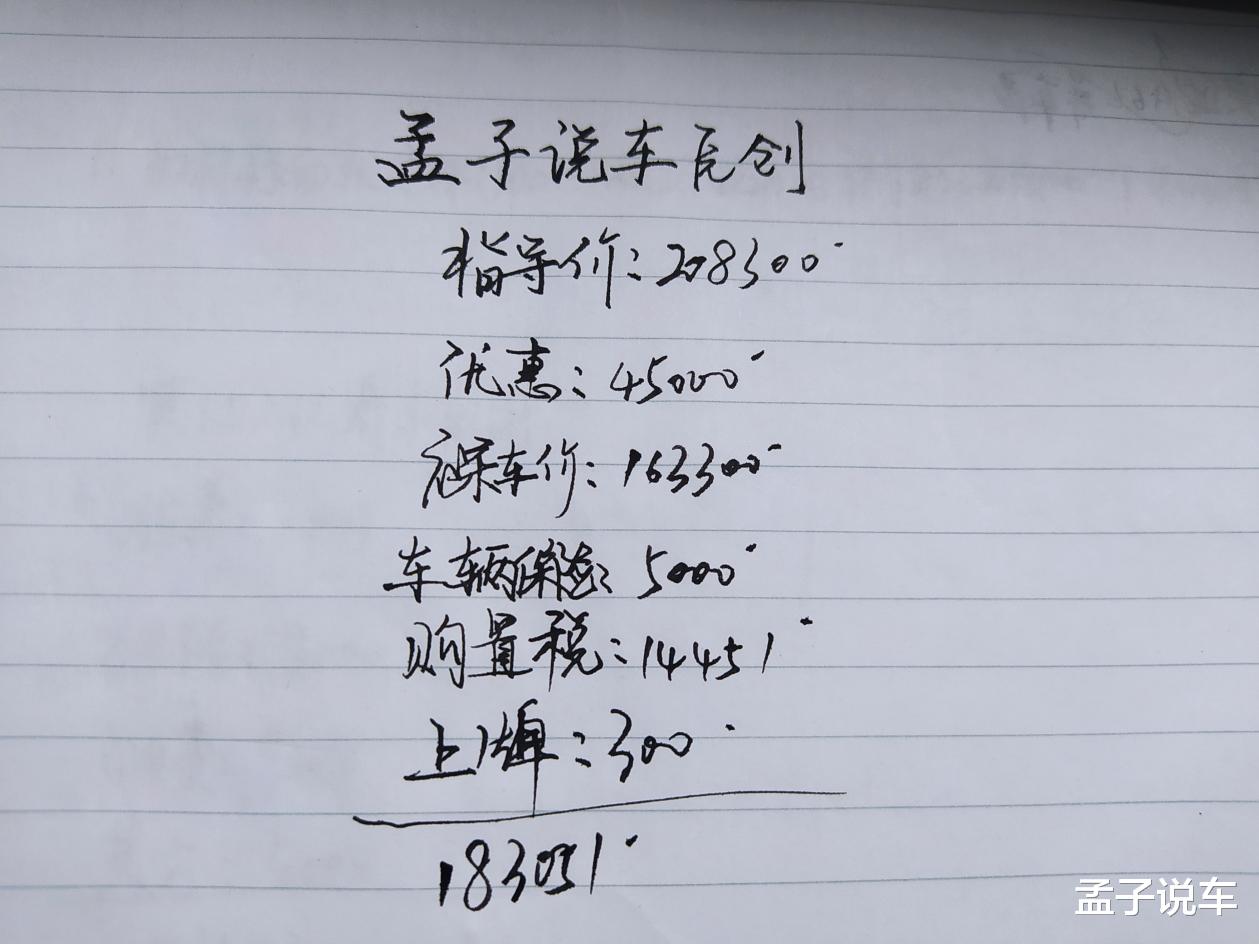 孟子说车原创
指导价：208300
优惠：45000
裸车价：163300
车辆保险：5000
购置税：14451
上牌：300
183051
孟子说车